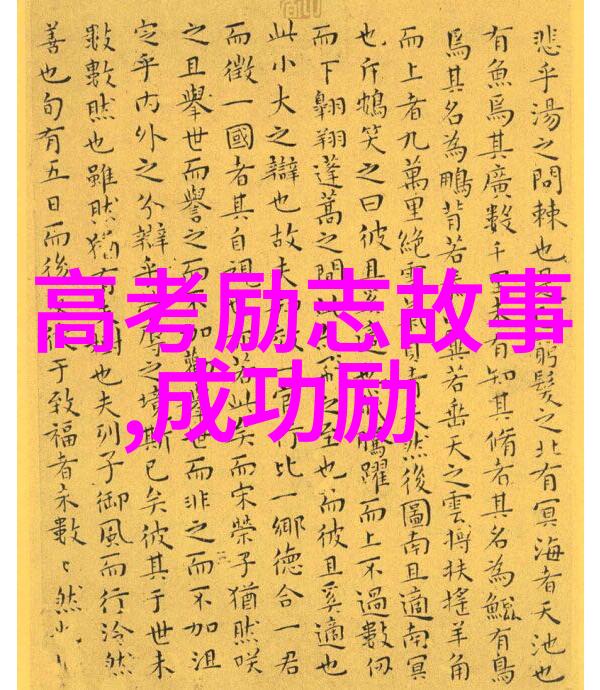 悲乎湯之問棘也窮髮之北有冥海者天池也
有魚焉其廣數千里未有知其脩者其名為鯤有鳥
焉其名為鵬背若若垂天之雲摶扶搖羊角
而上者九萬里絕雲天然後圖南且適南冥
也斥鴳笑之曰彼且騰躍而上不過數仞
而下翱翔蓬蒿之間之至也而彼且奚適也
此小大之辯也故夫官行比一鄉德合一君
而徵一國者其自視也若此矣而宋榮子猶然咲
之且舉世而譽之而不加舉世而非之而不加沮
定乎內外之分辯乎辱之境斯已矣彼其于世未
數數然也雖然猶有樹也夫列子御風而行泠然
善也旬有五日而後于致福者未數〻然也
高考励志故事
,成功励